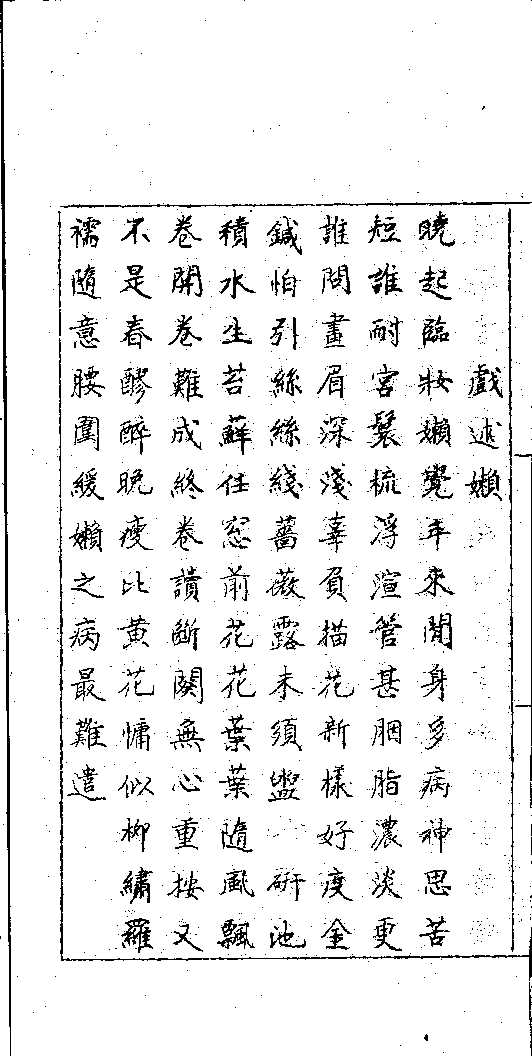 戲述嬾
曉起臨妝嬾覺年來閒身多病神思苦
短誰耐宮鬟梳浮渲管甚胭脂濃淡更
誰問畫眉深淺辜負描花新樣好度金
鍼怕引絲絲綫薔薇露未須盥 硏池
積水生苔蘚任窓前花花葉葉隨風飄
卷開卷難成終卷讀斷闋無心重按又
不是春醪醉晚瘦比黃花慵似柳繡羅
襦隨意腰圍緩嬾之病最難遣